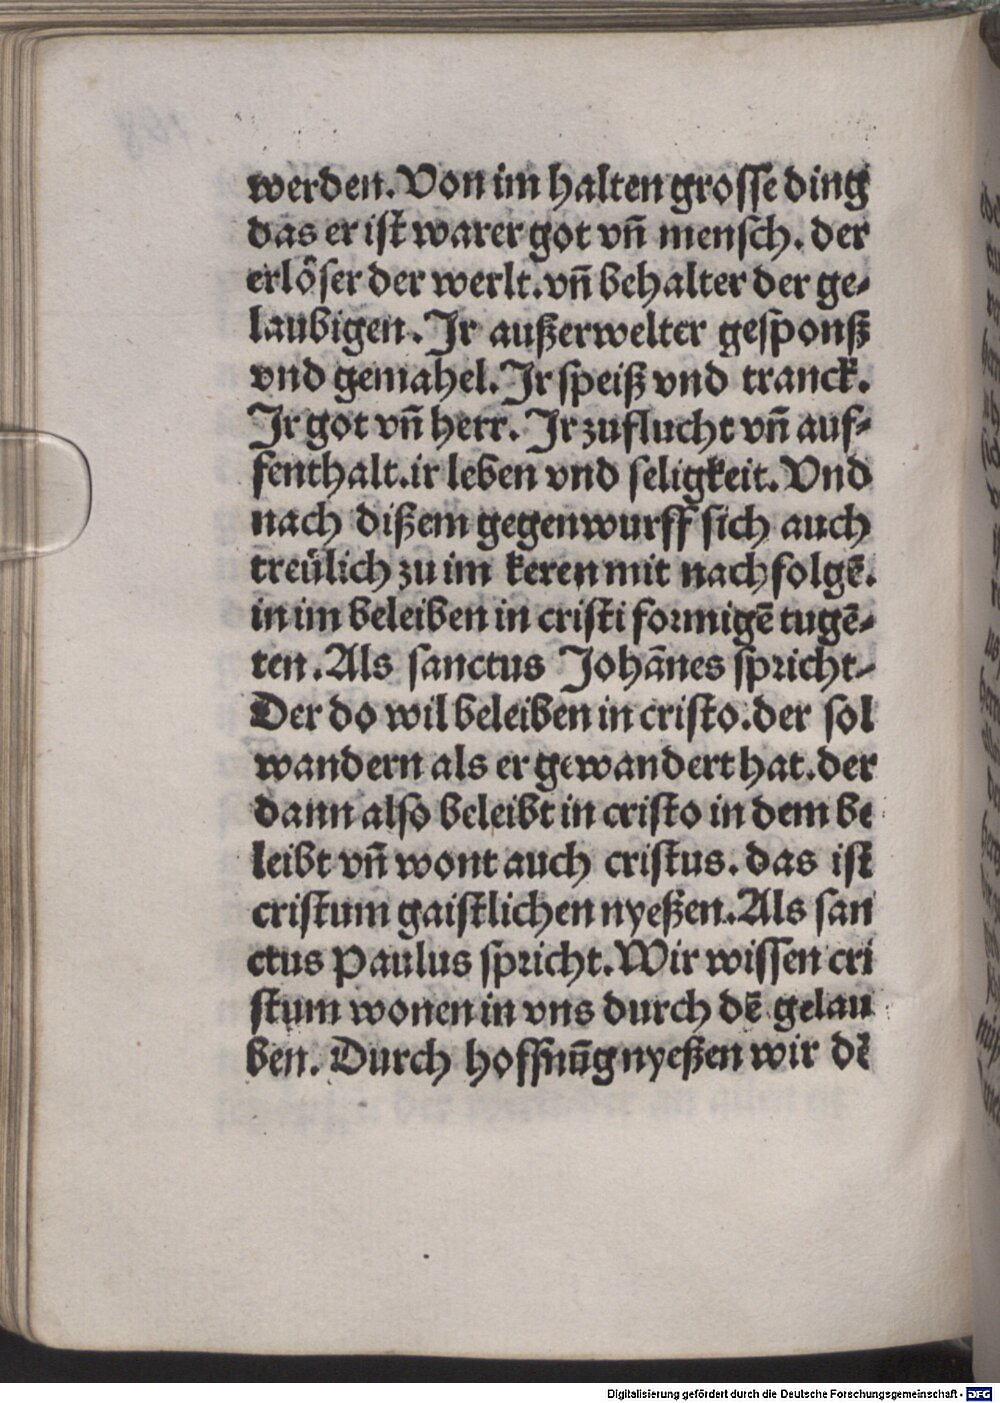 werden. Von im halten grosse ding
das er ist warer got vn̄ mensch. der
erlöser der werlt. vn̄ behalter der ge-
laubigen. Jr außerwelter gesponß
vnd gemahel. Jr speiß vnd tranck.
Jr got vn̄ herr. Jr zuflucht vn̄ auf-
fenthalt. ir leben vnd seligkeit. Vnd
nach dißem gegenwurff sich auch
treülich zu im keren mit nachfolgē.
in im beleiben in cristi formigē tugē-
ten. Als sanctus Johānes spricht-
Der do wil beleiben in cristo. der sol
wandern als er gewandert hat. der
dann also beleibt in cristo in dem be
leibt vn̄ wont auch cristus. das ist
cristum gaistlichen nyeßen. Als san
ctus Paulus spricht. Wir wissen cri
stum wonen in vns durch dē gelau
ben. Durch hoffnūg nyeßen wir dē
Digitalisierung gefördert durch die Deutsche Forschungsgemeinschaft - DFG